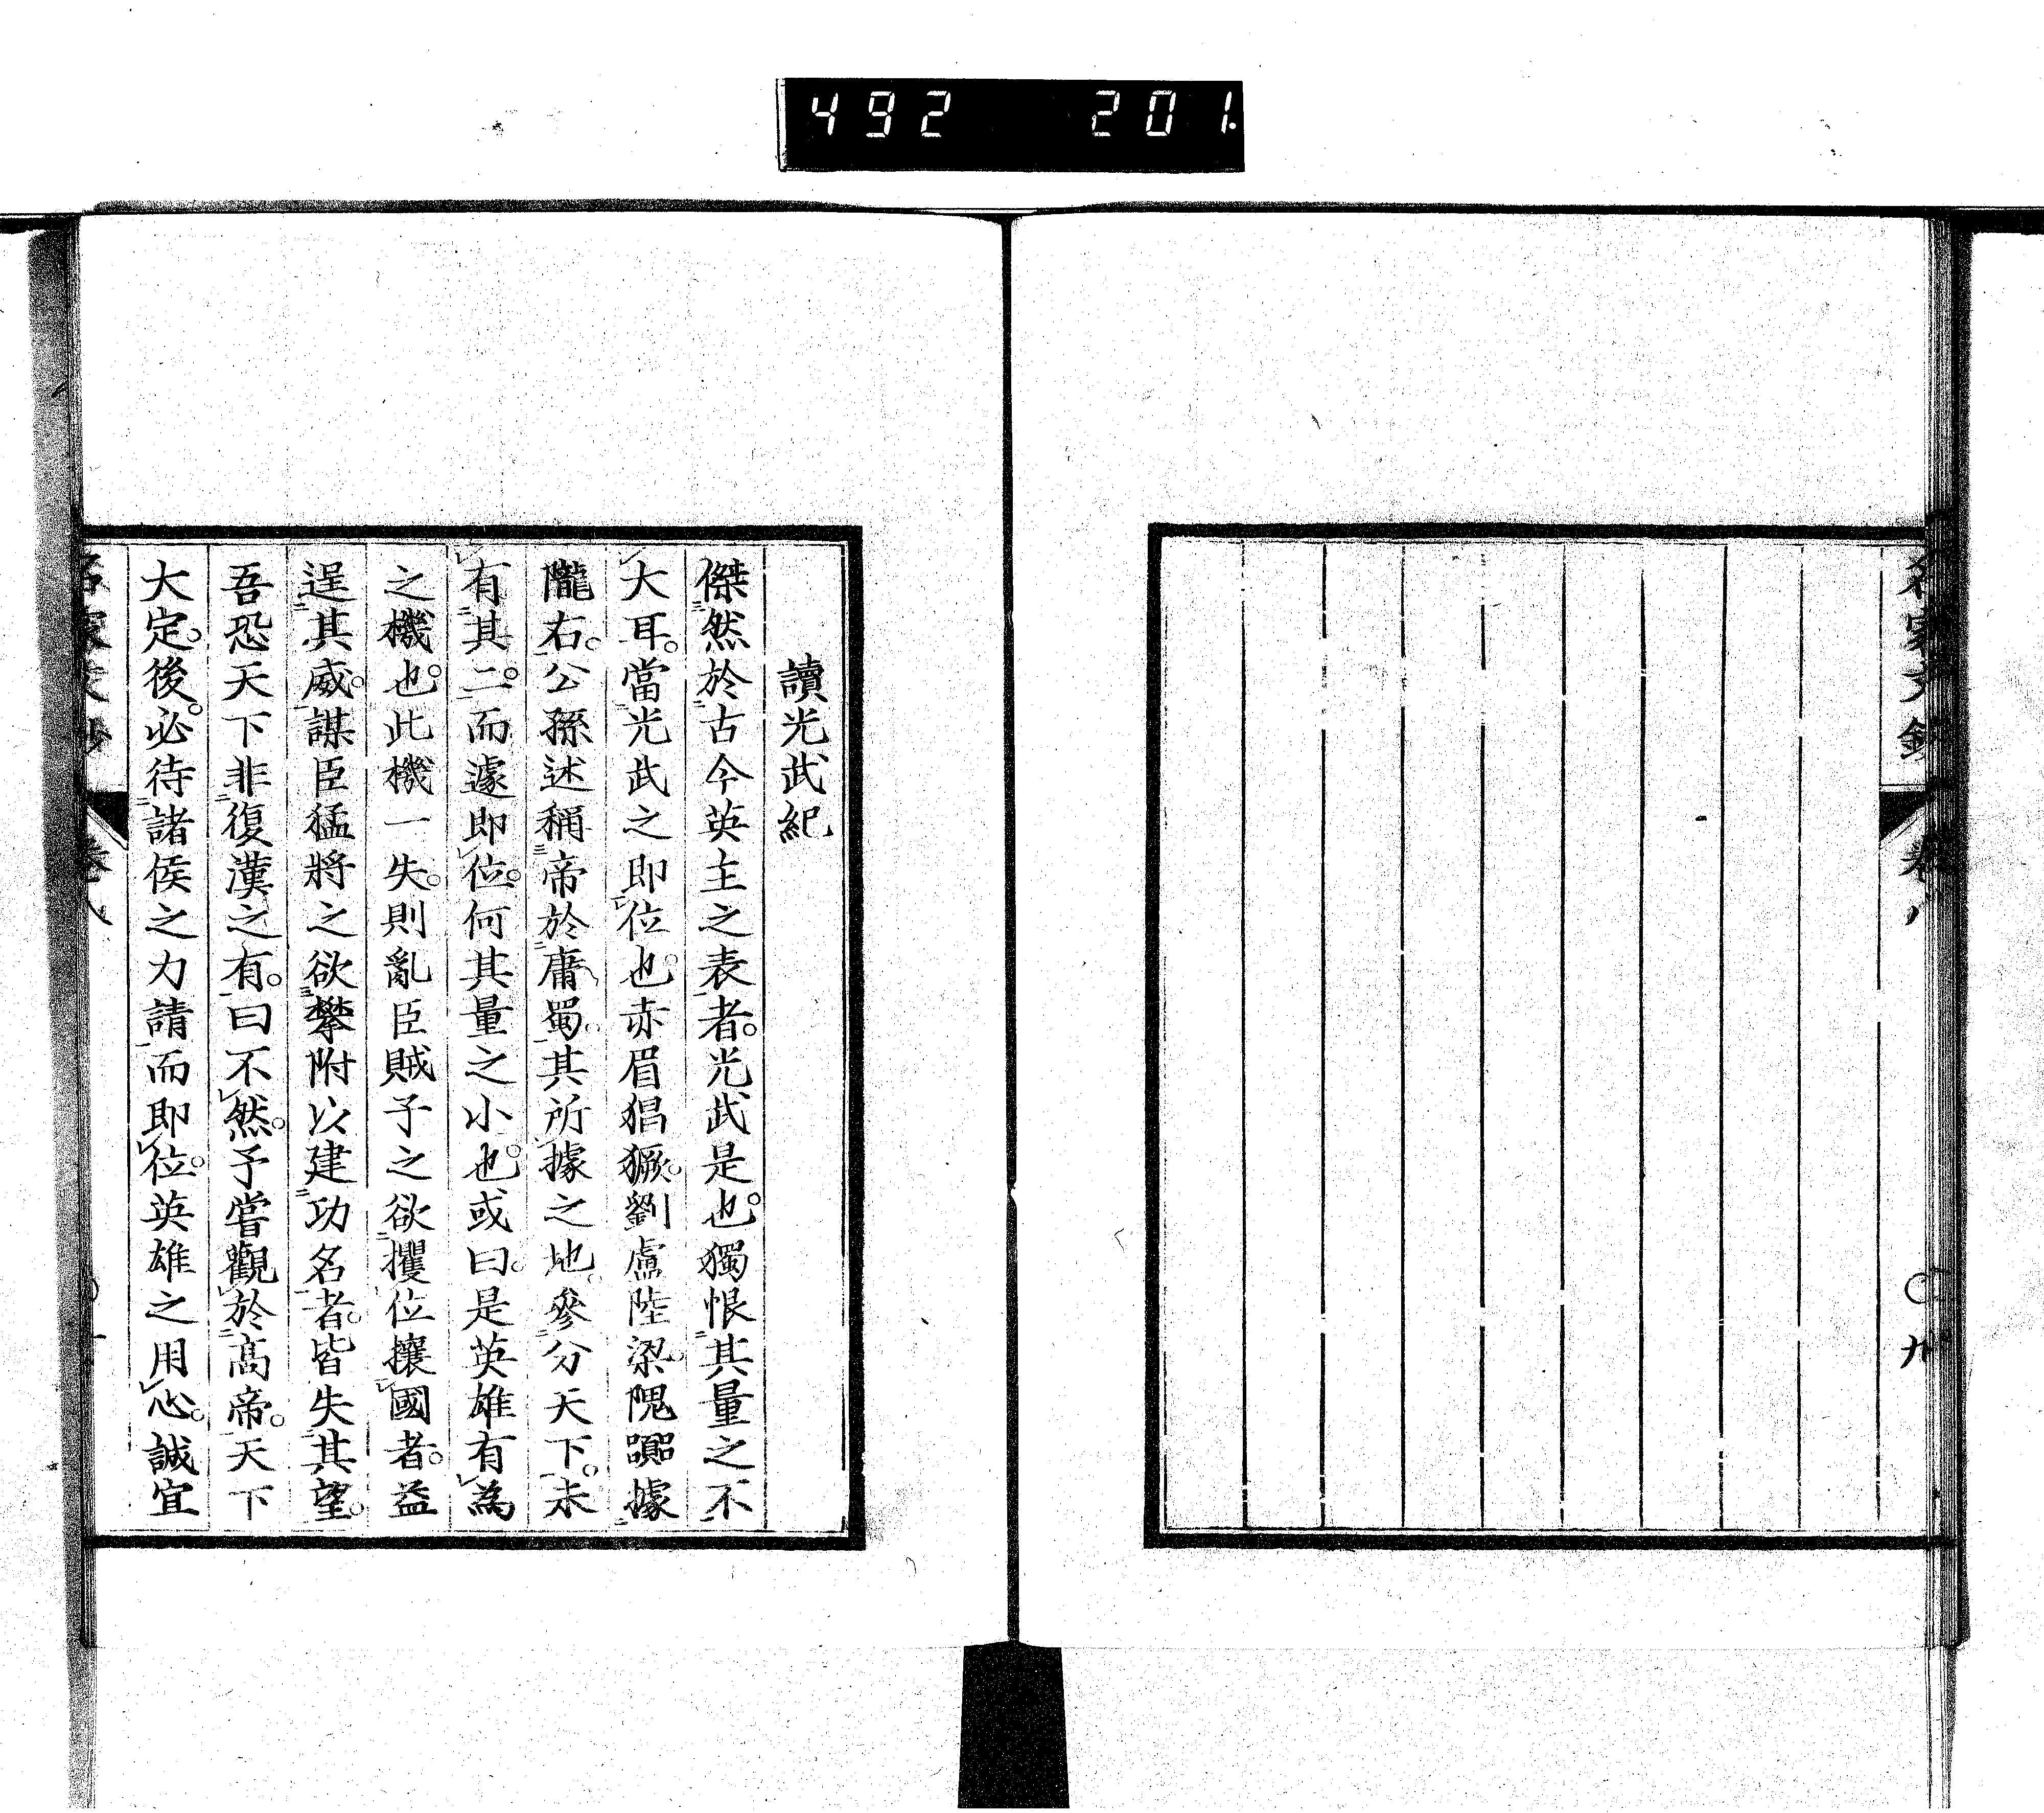 492 201.
名家文鈔 卷八 〇九
讀光武紀
傑然於古今英主之表者。光武是也。獨恨其量之不
大耳。當光武之即位也。赤眉猖獗。劉盧陸梁。隗囂據
隴右。公孫述稱帝於庸蜀。其所據之地。參分天下。未
有其二。而遽即位。何其量之小也。或曰。是英雄有為
之機也。此機一失。則亂臣賊子之欲攫位攘國者。益
逞其威。謀臣猛將之欲攀附以建功名者。皆失其望。
吾恐天下非復漢之有。曰不然。予嘗觀於高帝。天下
大定。後。必待諸侯之力請而即位。英雄之用心。誠宜